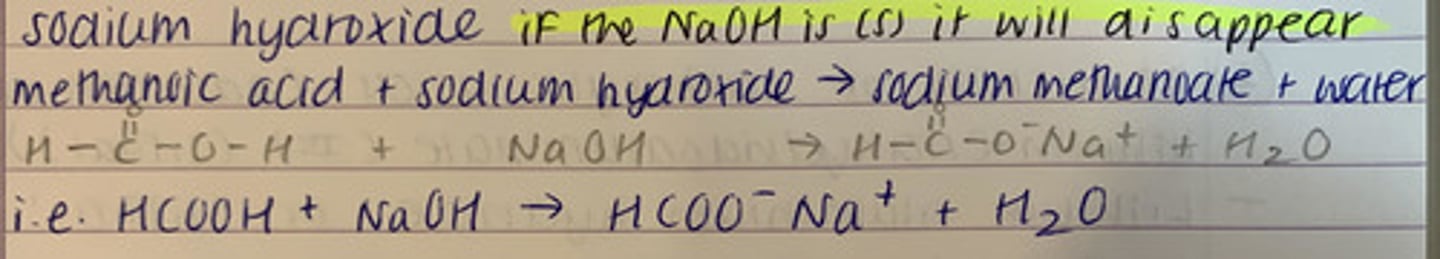 sodium hydroxide if the NaOH is (s) it will disappear
methanoic acid + sodium hydroxide → sodium methanoate + water
O O
H-C-O-H + NaOH → H-C-O⁻Na⁺ + H₂O
i.e. HCOOH + NaOH → HCOO⁻Na⁺ + H₂O